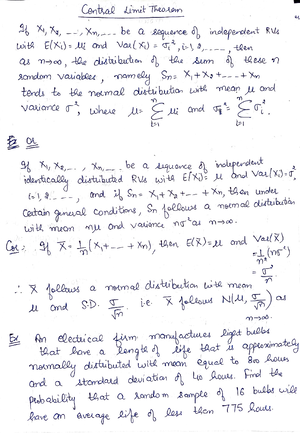 Central Limit Theorem
If X₁, X₂, ---, Xn, --- be a sequence of independent RVs
with E(Xi) = μi and Var(Xi) = σi², i=1, 2, ----, then
as n→∞, the distribution of the sum of these n
random variables, namely Sn = X₁ + X₂ + ---- + Xn
tends to the normal distribution with mean μ and
variance σ², where μ = Σ_{i=1}^{n} μi and σ² = Σ_{i=1}^{n} σi².
OR
If X₁, X₂, ---, Xn, --- be a sequence of independent
identically distributed RVs with E(Xi) = μ and Var(Xi) = σ²,
i=1, 2, ----, and if Sn = X₁ + X₂ + -- + Xn, then under
certain general conditions, Sn follows a normal distribution
with mean nμ and variance nσ² as n→∞.
Cor: If X̄ = 1/n (X₁ + -- + Xn), then E(X̄) = μ and Var(X̄)
= 1/n² (nσ²)
= σ²/n
∴ X̄ follows a normal distribution with mean
μ and S.D. σ/√n i.e. X̄ follows N(μ, σ/√n) as
n→∞
Ex An electrical firm manufactures light bulbs
that have a length of life that is approximately
normally distributed with mean equal to 800 hours
and a standard deviation of 40 hours. Find the
probability that a random sample of 16 bulbs will
have an average life of less than 775 hours.